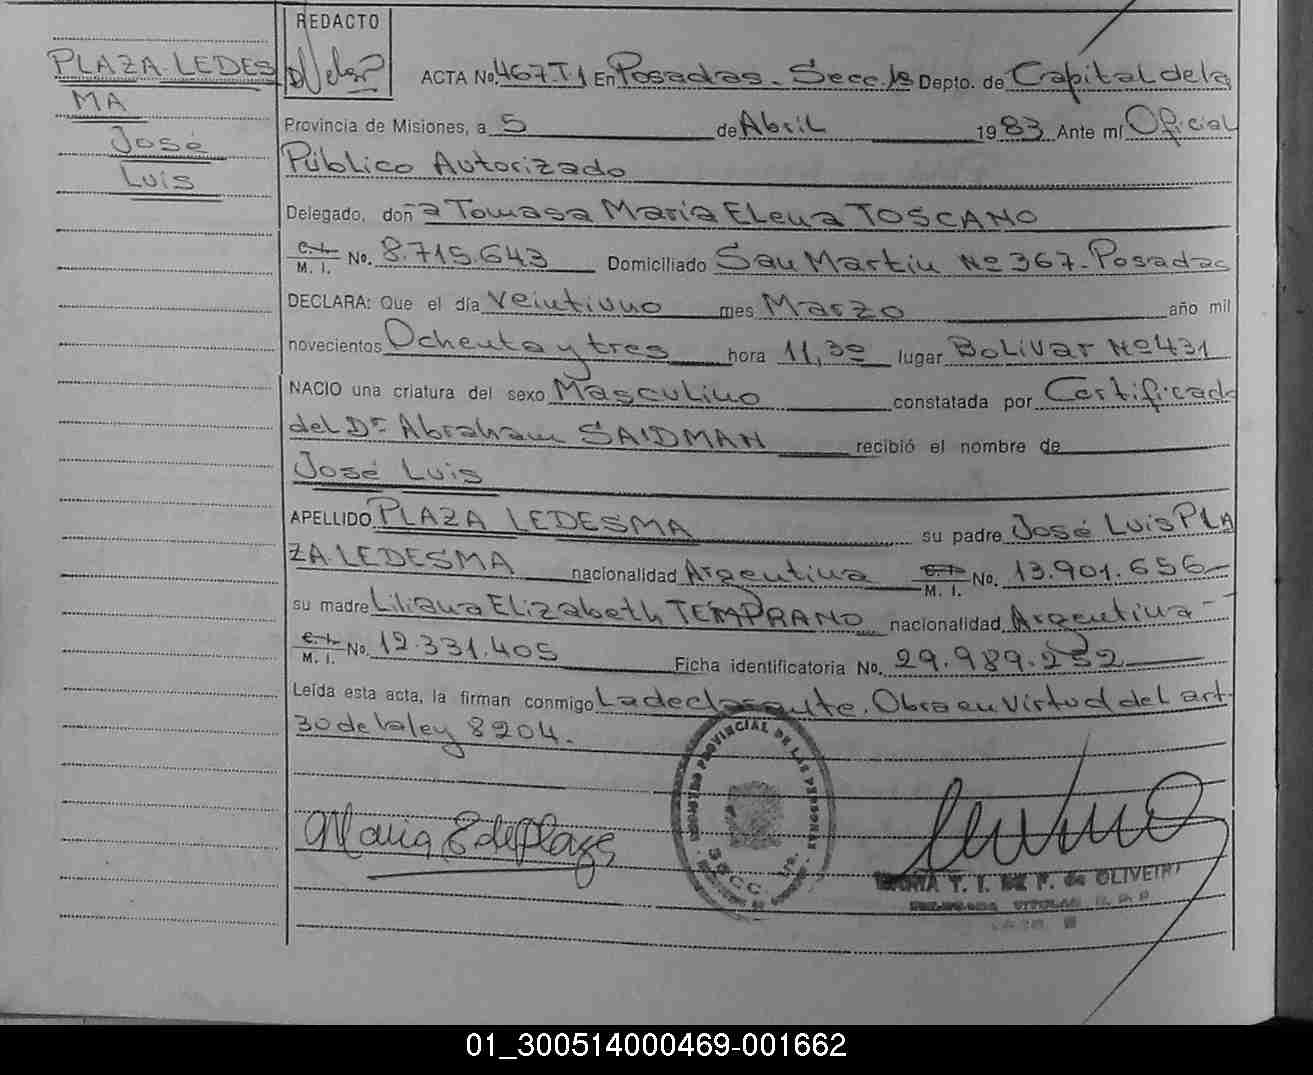 PLAZA LEDES
MA
José
Luis
REDACTO
ACTA No. 467 T1 En Posadas. Secc. 1a Depto. de Capital de la
Provincia de Misiones, a 5 de Abril 1983 Ante mí Oficial
Público Autorizado
Delegado, doña Tomasa María Elena TOSCANO
C.I. M. I. No. 8.715.643 Domiciliado San Martin Nº 367. Posadas
DECLARA: Que el día veintiuno mes Marzo año mil
novecientos Ochenta y tres hora 11,30 lugar Bolivar Nº 431
NACIO una criatura del sexo Masculino constatada por Certificado
del Dr Abraham SAIDMAN recibió el nombre de
José Luis
APELLIDO PLAZA LEDESMA su padre José Luis PLA
ZA LEDESMA nacionalidad Argentina C.I. M. I. No. 13.901.656
su madre Liliana Elizabeth TEMPRANO nacionalidad Argentina
C.I. M. I. No. 12.331.405 Ficha identificatoria No. 29.989.252
Leída esta acta, la firman conmigo La declarante. Obra en Virtud del art.
30 de la ley 8204.
REGISTRO PROVINCIAL DE LAS PERSONAS
SECC. 1ra.
Maria E de Plaza
MARIA T. I. DE F. de OLIVEIRA
DELEGADA TITULAR R. P. P.
01_300514000469-001662